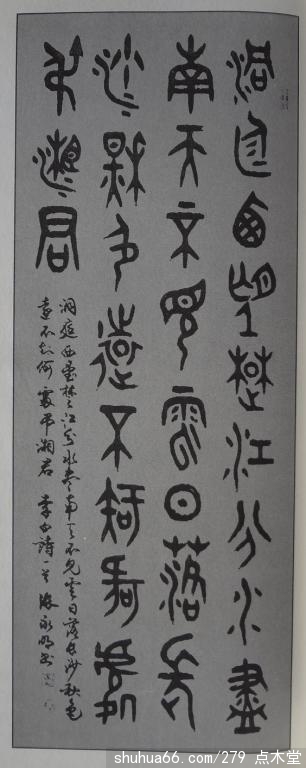 洞庭西望楚江分水盡
南天不見雲日落長
沙秋色遠不知何處
弔湘君
洞庭西望楚江分水盡南天不見雲日落長沙秋色
遠不知何處弔湘君 李白詩一首 永明书
shuhua66.com/279 点木堂